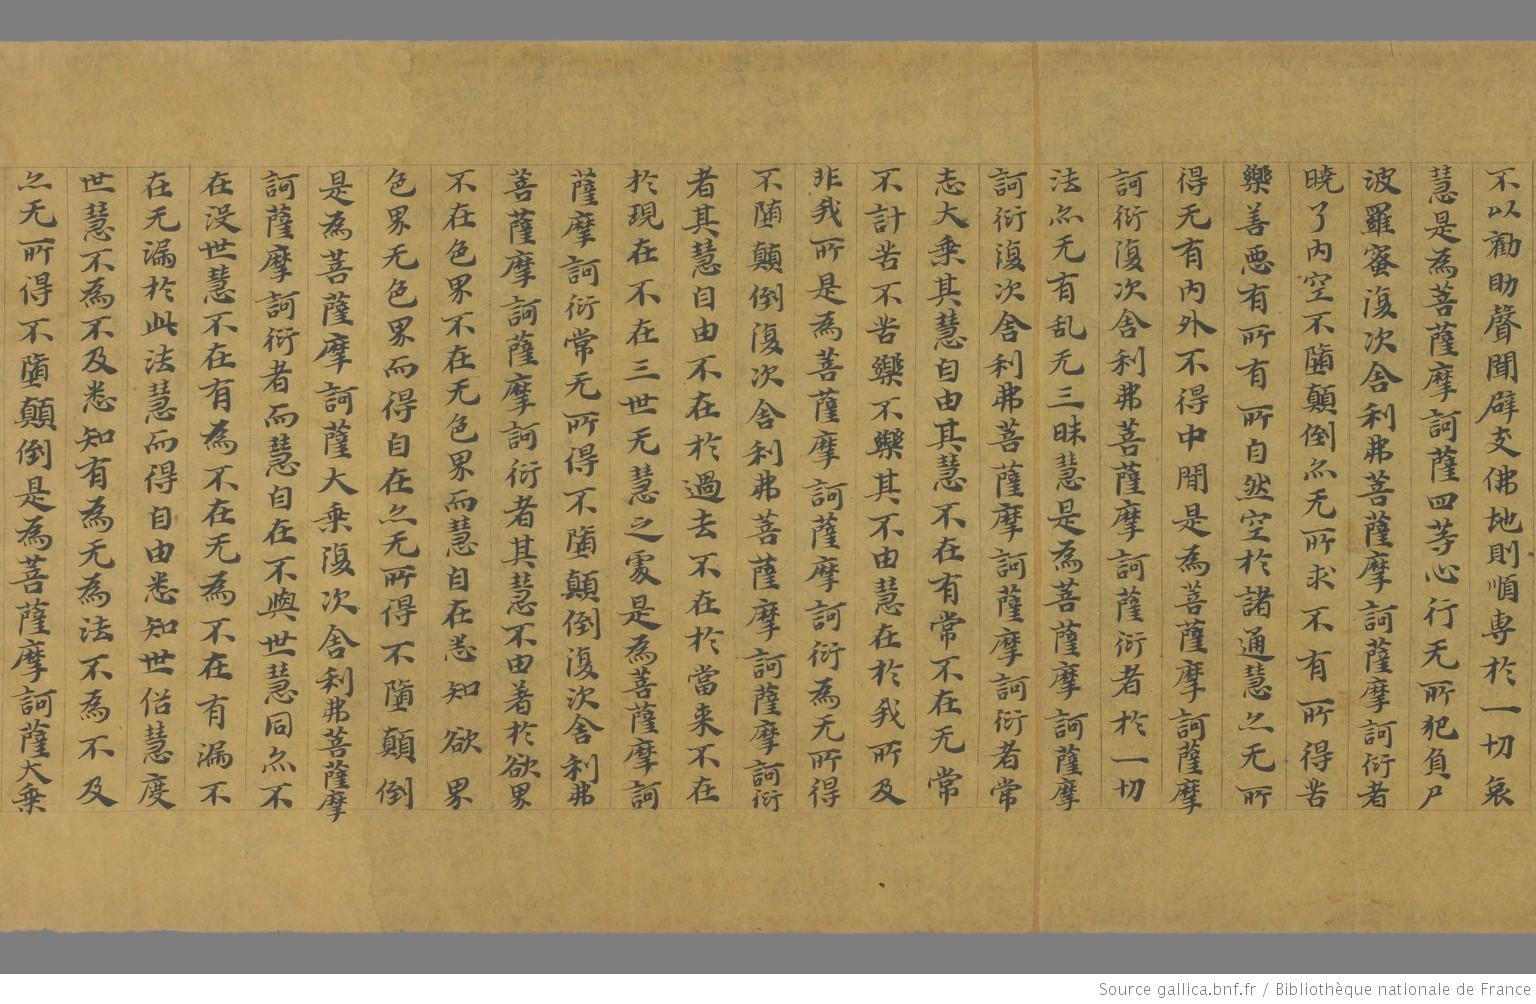 不以勸助聲聞辟支佛地則順專於一切哀
慧是為菩薩摩訶薩四等心行无所犯負尸
波羅蜜復次舍利弗菩薩摩訶薩摩訶衍者
曉了內空不墮顛倒亦无所求不有所得苦
樂善惡有所有所自然空於諸通慧亦无所
得无有內外不得中間是為菩薩摩訶薩摩
訶衍復次舍利弗菩薩摩訶薩衍者於一切
法亦无有乱无三昧慧是為菩薩摩訶薩摩
訶衍復次舍利弗菩薩摩訶薩摩訶衍者常
志大乘其慧自由其慧不在有常不在无常
不計苦不苦樂不樂其不由慧在於我所及
非我所是為菩薩摩訶薩摩訶衍為无所得
不墮顛倒復次舍利弗菩薩摩訶薩摩訶衍
者其慧自由不在於過去不在於當来不在
於現在不在三世无慧之處是為菩薩摩訶
薩摩訶衍常无所得不墮顛倒復次舍利弗
菩薩摩訶薩摩訶衍者其慧不由著於欲界
不在色界不在无色界而慧自在悉知欲界
色界无色界而得自在亦无所得不墮顛倒
是為菩薩摩訶薩大乘復次舍利弗菩薩摩
訶薩摩訶衍者而慧自在不與世慧同亦不
在没世慧不在有為不在无為不在有漏不
在无漏於此法慧而得自由悉知世俗慧度
世慧不為不及悉知有為无為法不為不及
亦无所得不墮顛倒是為菩薩摩訶薩大乘
Source gallica.bnf.fr / Bibliothèque nationale de France